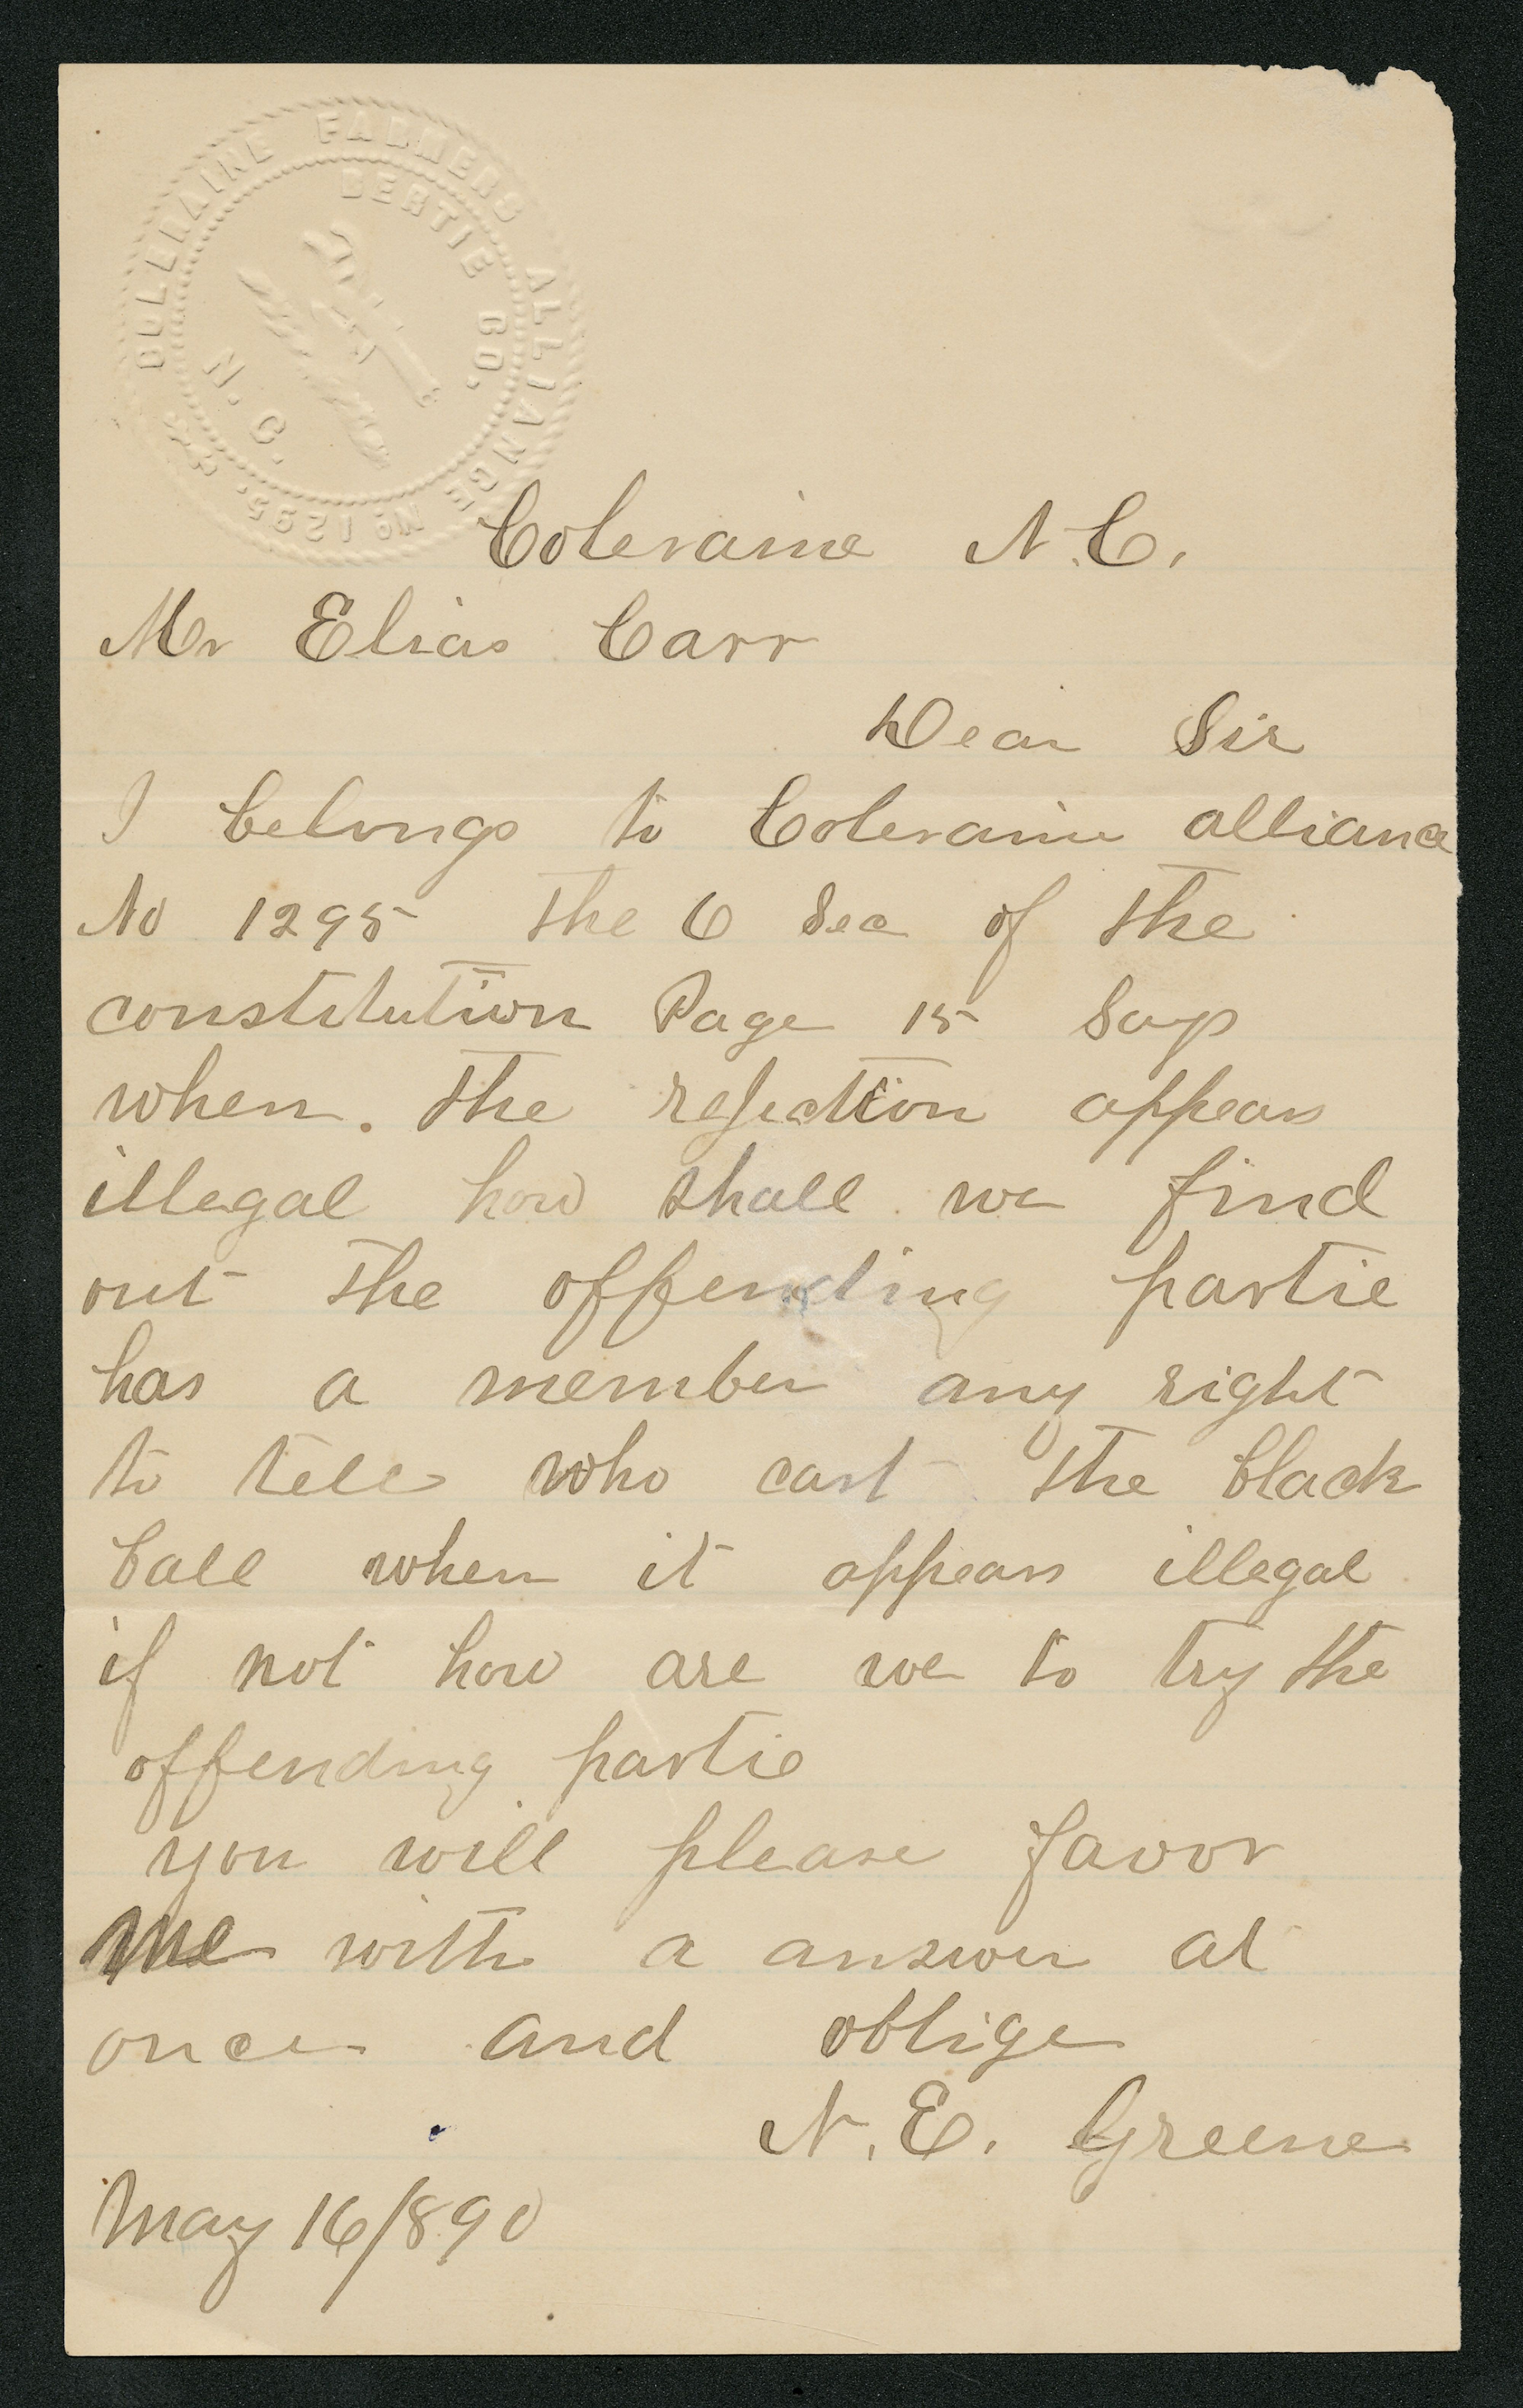 COLERAINE FARMERS ALLIANCE No. 1295.
BERTIE CO.
N. C.
Coleraine N.C.
Mr Elias Carr
Dear Sir
I belongs to Coleraine alliance
No 1295 the 6 Sec of the
constitution Page 15 Says
when. the rejection appears
illegal how shall we find
out the offending partie
has a member any right
to tell who cast the black
ball when it appears illegal
if not how are we to try the
offending partie
you will please favor
me with a answer at
once and oblige
N. E. Greene
May 16/890